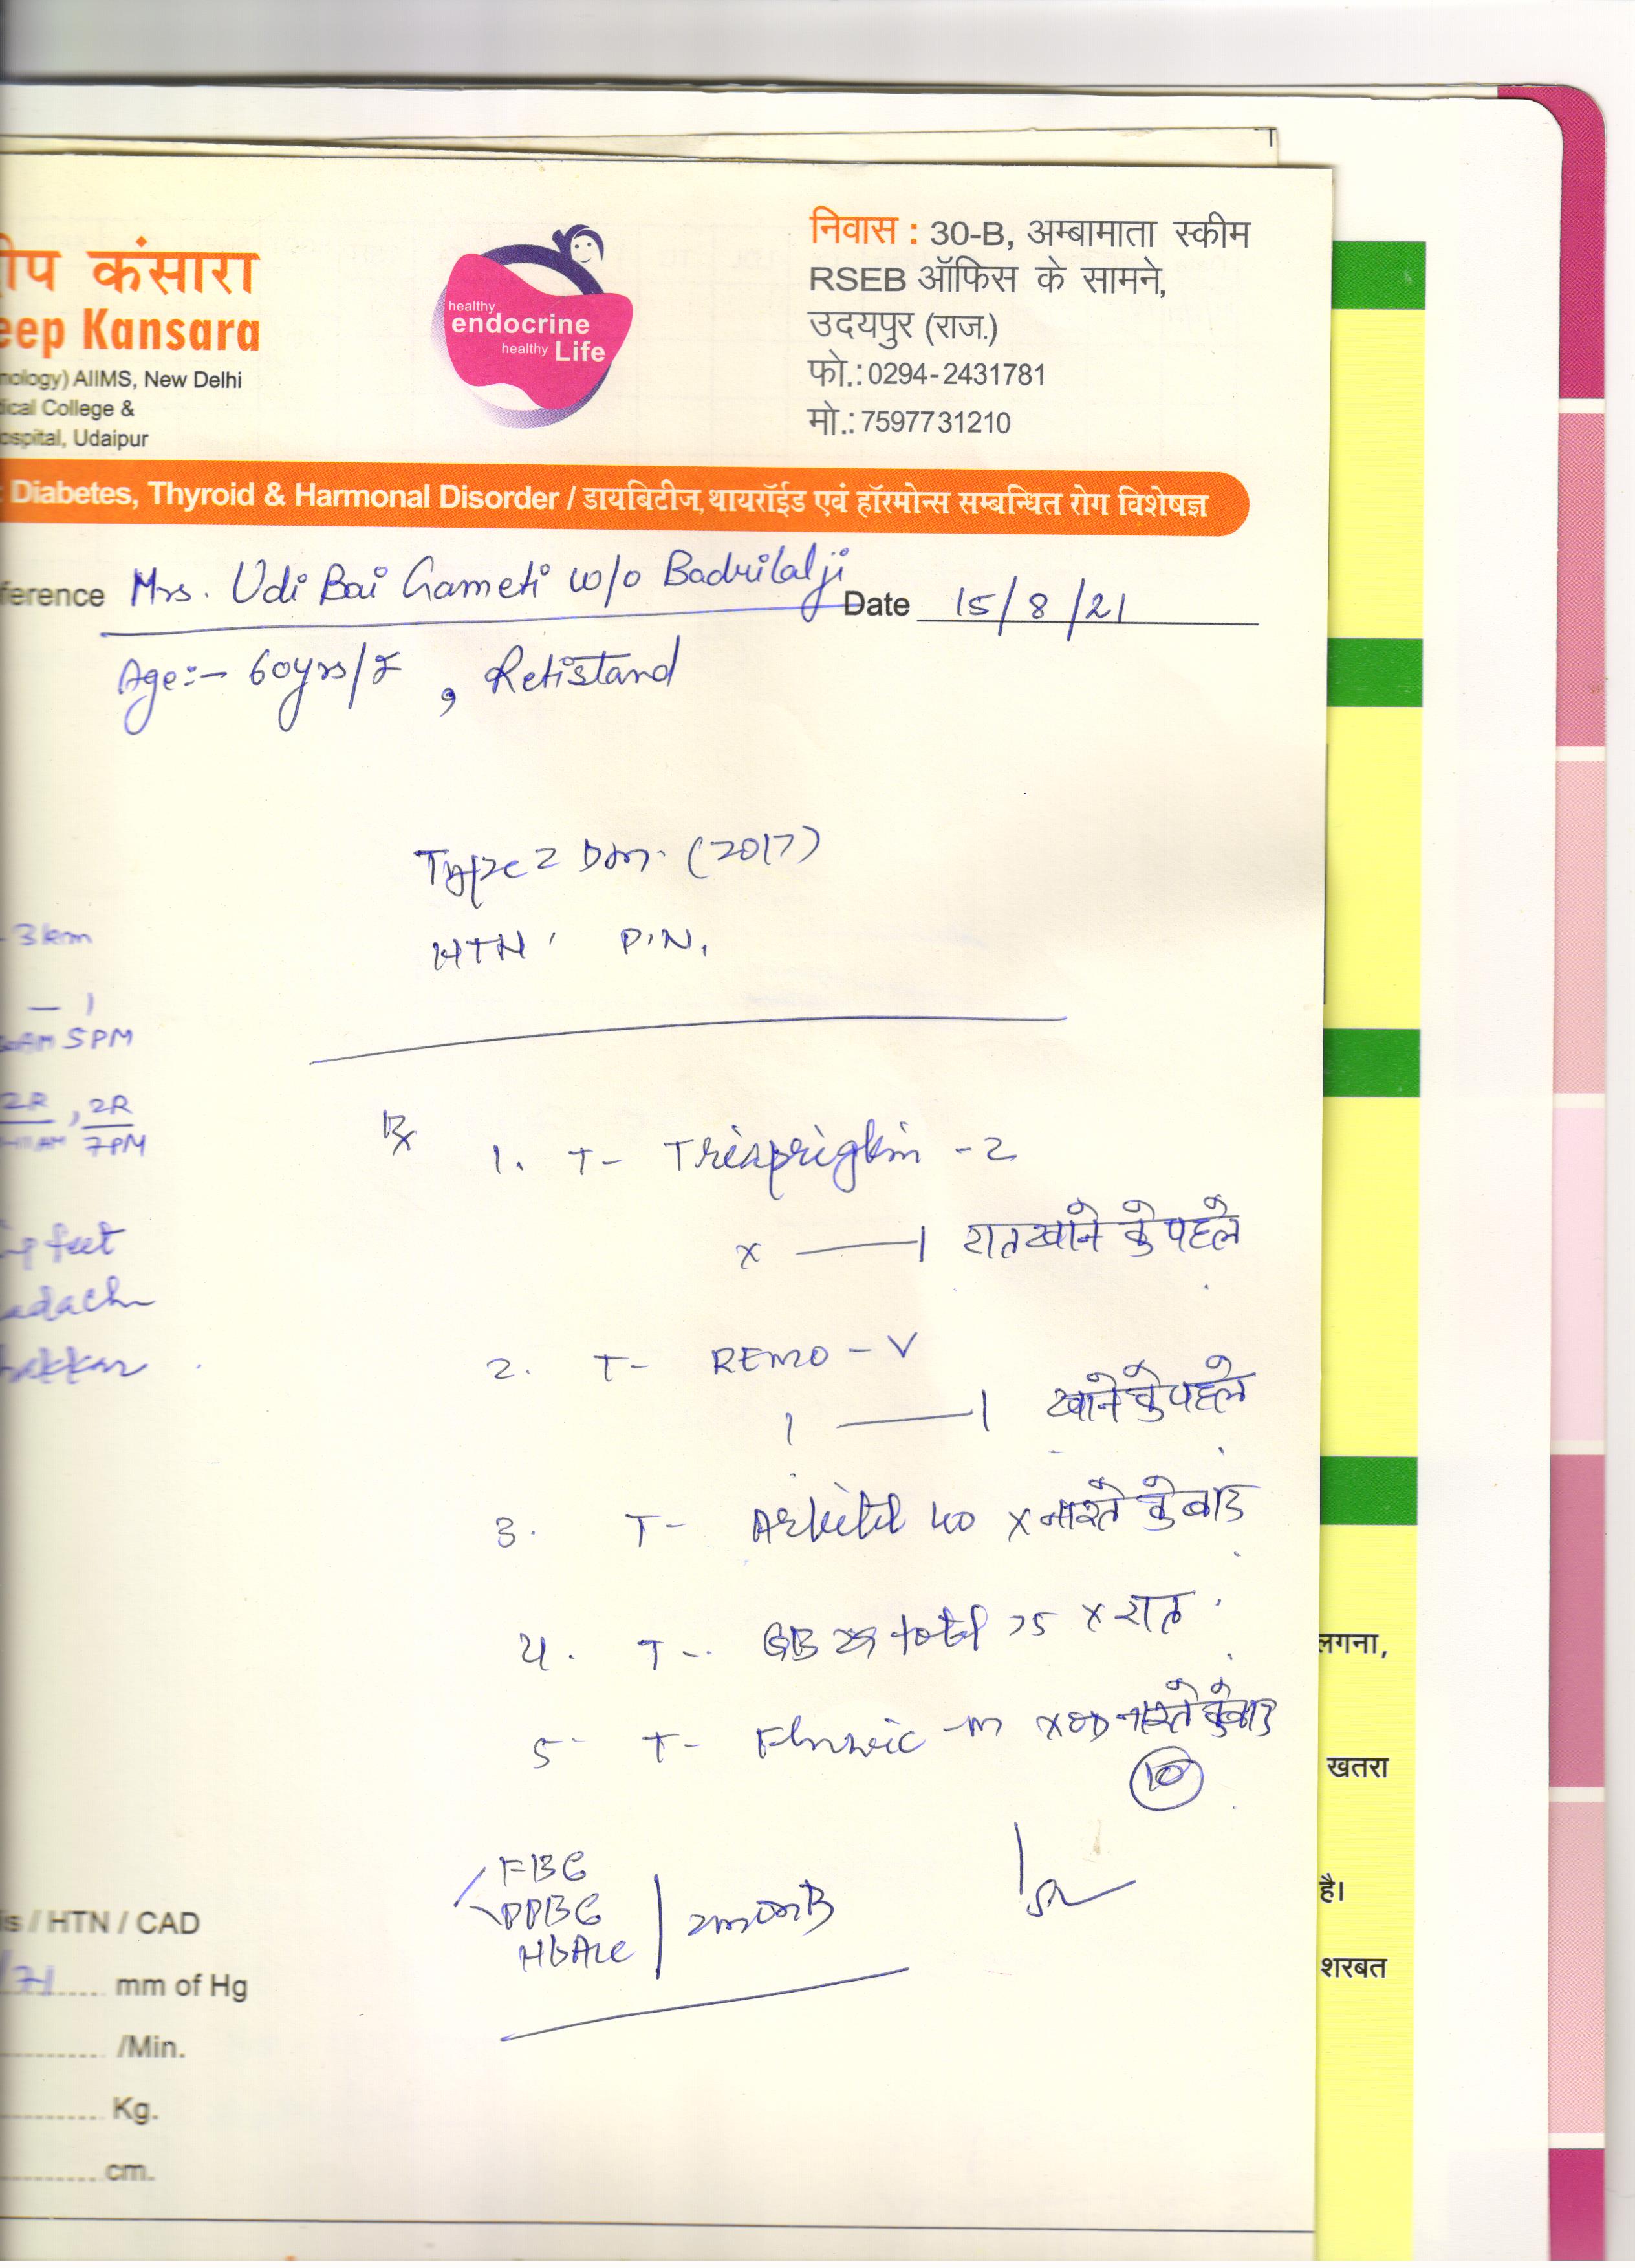 ीप कंसारा
eep Kansara
nology) AIIMS, New Delhi
ical College &
ospital, Udaipur
healthy
endocrine
healthy Life
निवास : 30-B, अम्बामाता स्कीम
RSEB ऑफिस के सामने,
उदयपुर (राज.)
फो.: 0294-2431781
मो.: 7597731210
: Diabetes, Thyroid & Harmonal Disorder / डायबिटीज, थायरॉईड एवं हॉरमोन्स सम्बन्धित रोग विशेषज्ञ
ference Mrs. Udi Bai Gameti w/o Badrilalji Date 15/8/21
Age:- 60yrs/F , Retistand
Type 2 Dm. (2017)
HTN, P.N.
3km
— 1
AM 5PM
2R , 2R
11AM 7PM
g feet
adach
akkar
Rx
1. T- -2
x — 1 रात खाने के पहले
2. T- REMO - V
1 — 1 खाने के पहले
3. T- 40 x नाश्ते के बाद
4. T- GB total 75 x रात
5 T- -m x OD नाश्ते के बाद
10
FBG
PPBG
HbA1c
2month
is / HTN / CAD
/71 mm of Hg
/Min.
Kg.
cm.
लगना,
खतरा
है।
शरबत